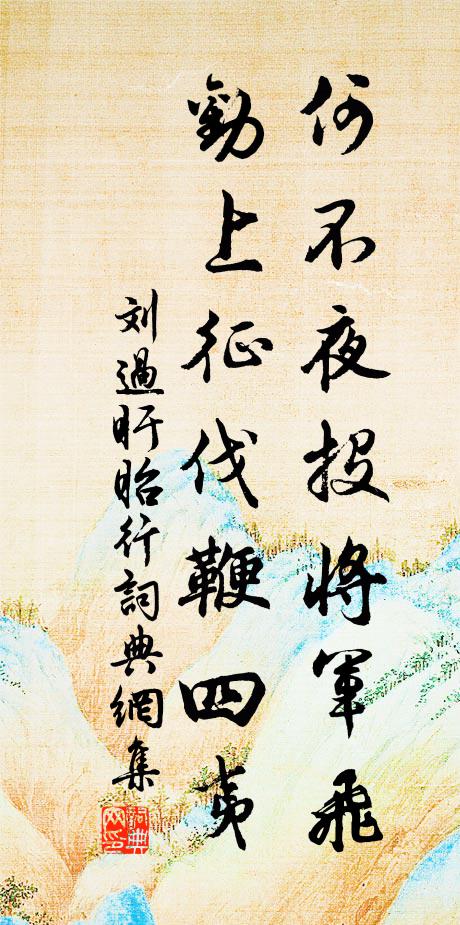 何不夜投將軍飛
勸上征伐鞭四夷
刘過盱眙行詞典網集
詞典網印